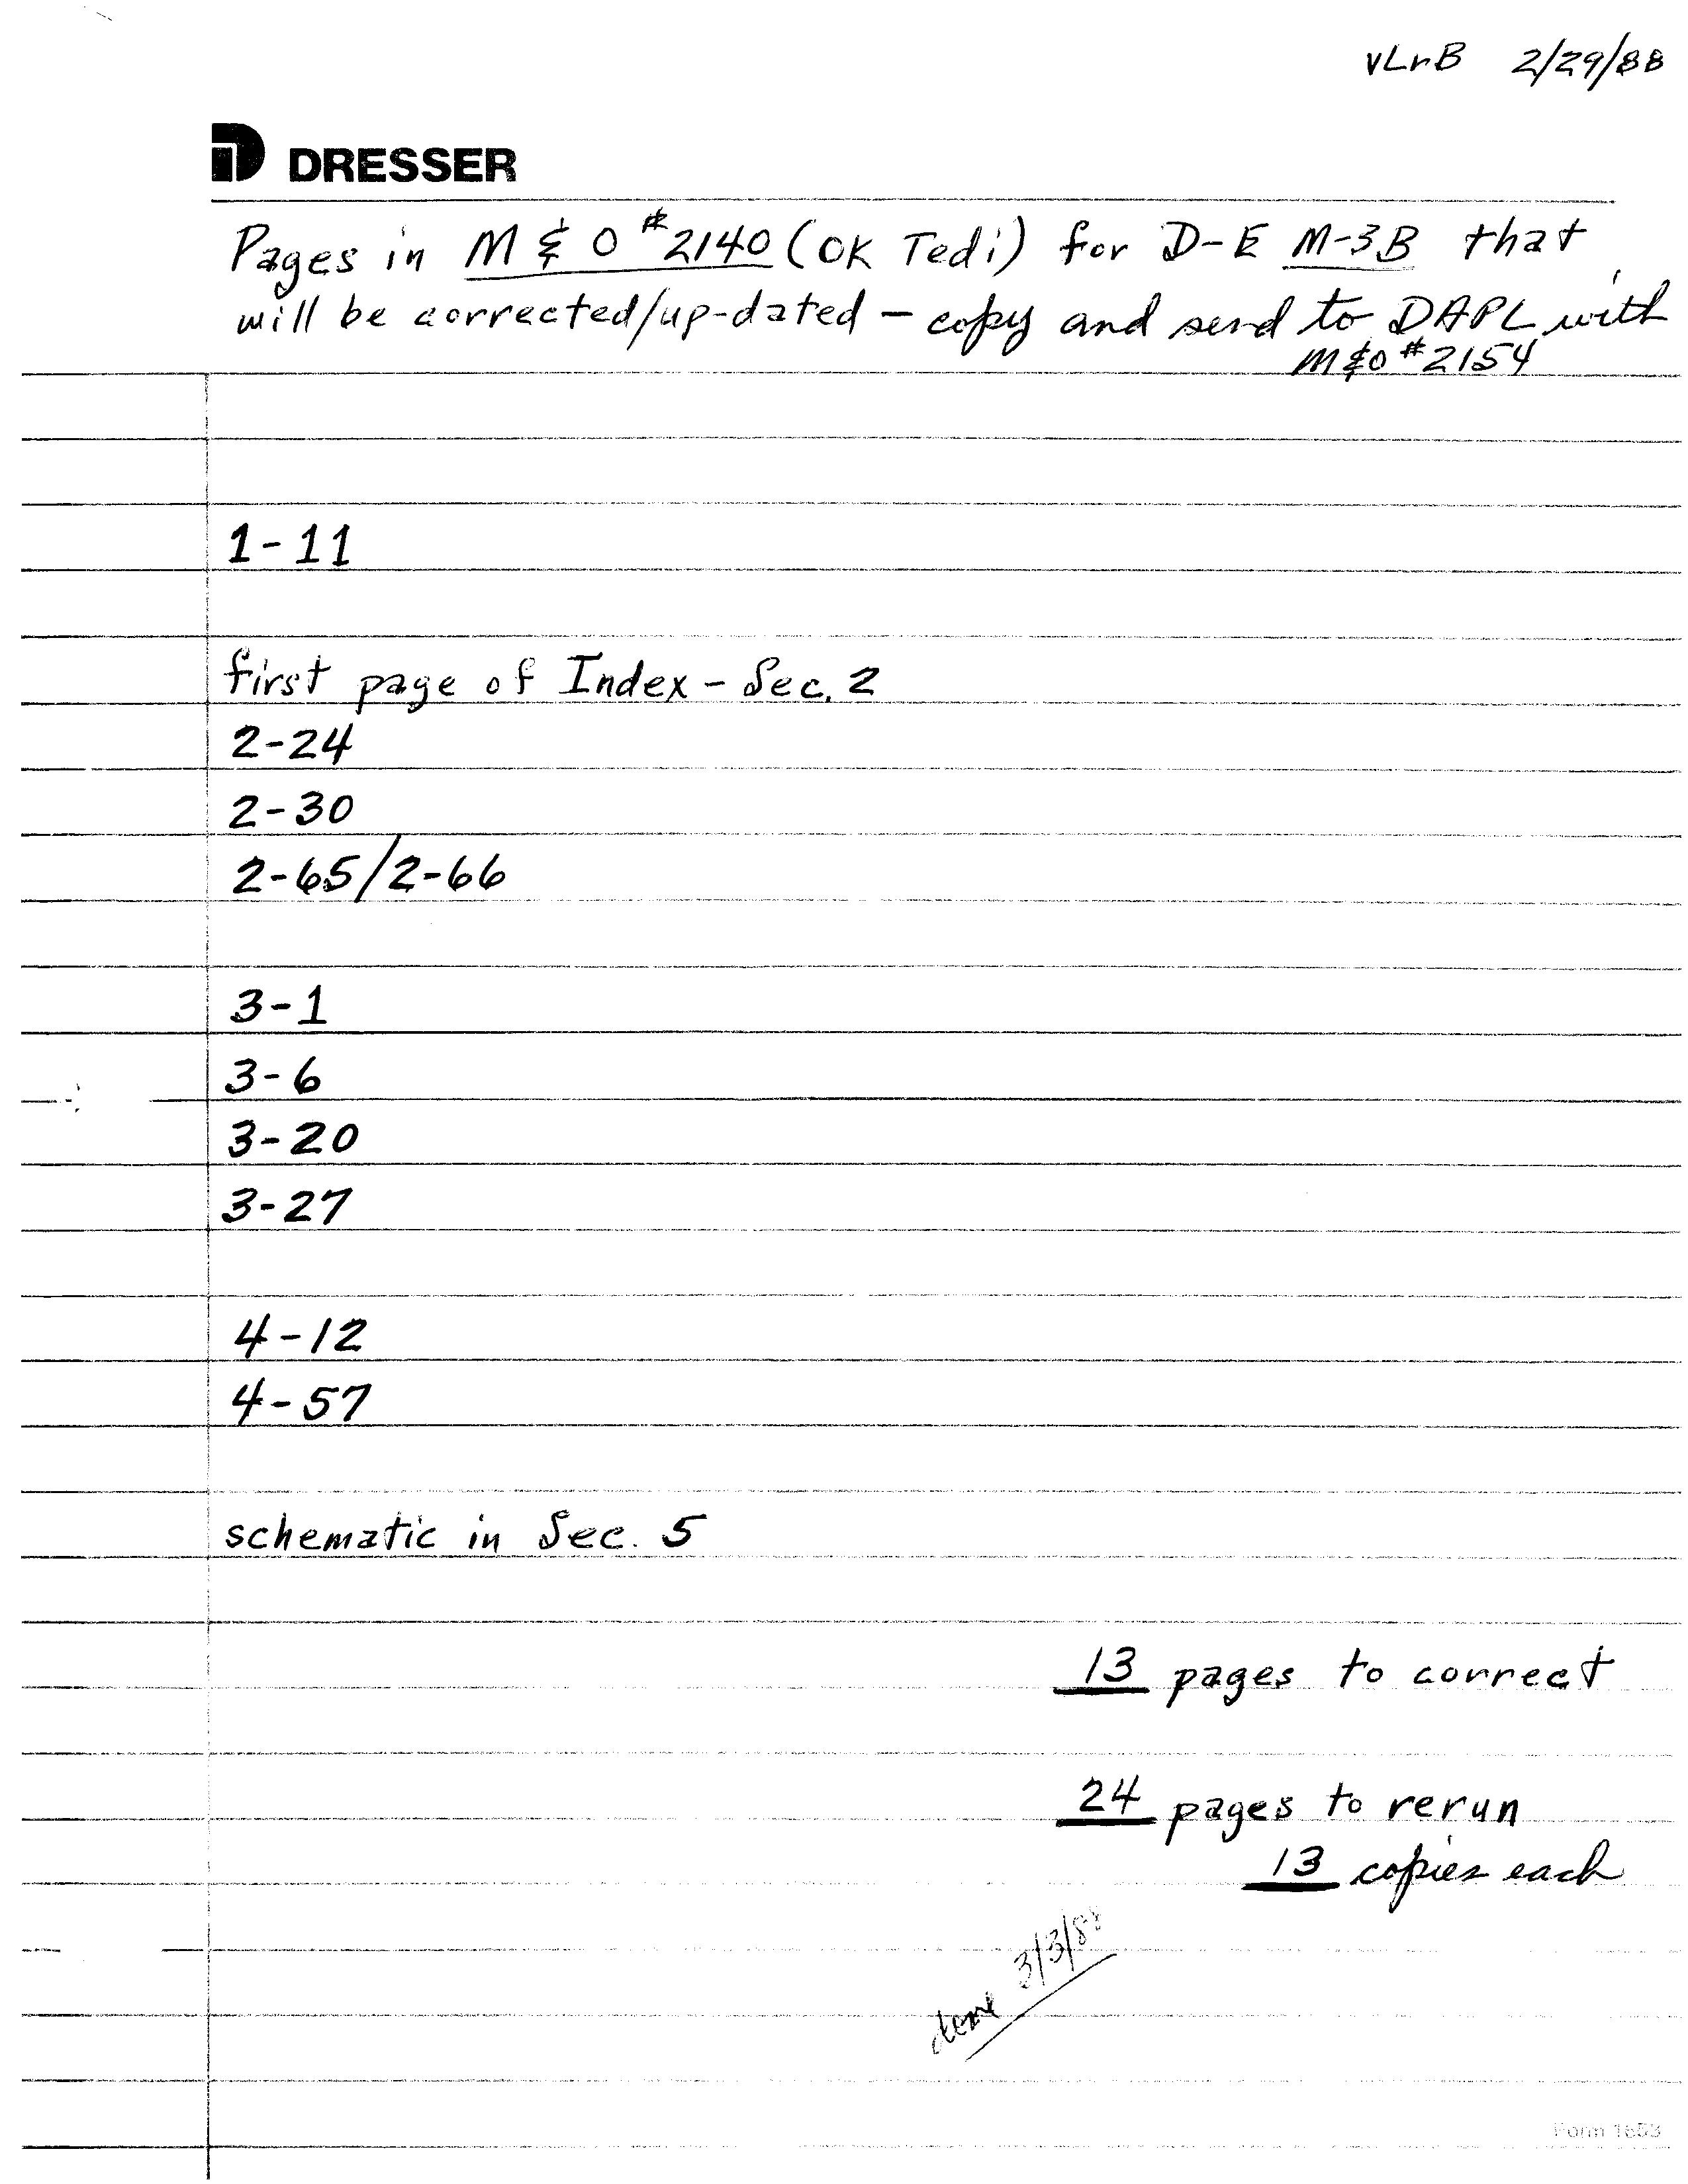 vLrB 2/29/88
DRESSER
Pages in M & O #2140 (OK Tedi) for D-E M-3B that
will be corrected/up-dated - copy and send to DAPL with
M&O #2154
1-11
first page of Index - Sec. 2
2-24
2-30
2-65/2-66
3-1
3-6
3-20
3-27
4-12
4-57
schematic in Sec. 5
13 pages to correct
24 pages to rerun
13 copies each
done 3/3/88
Form 1653